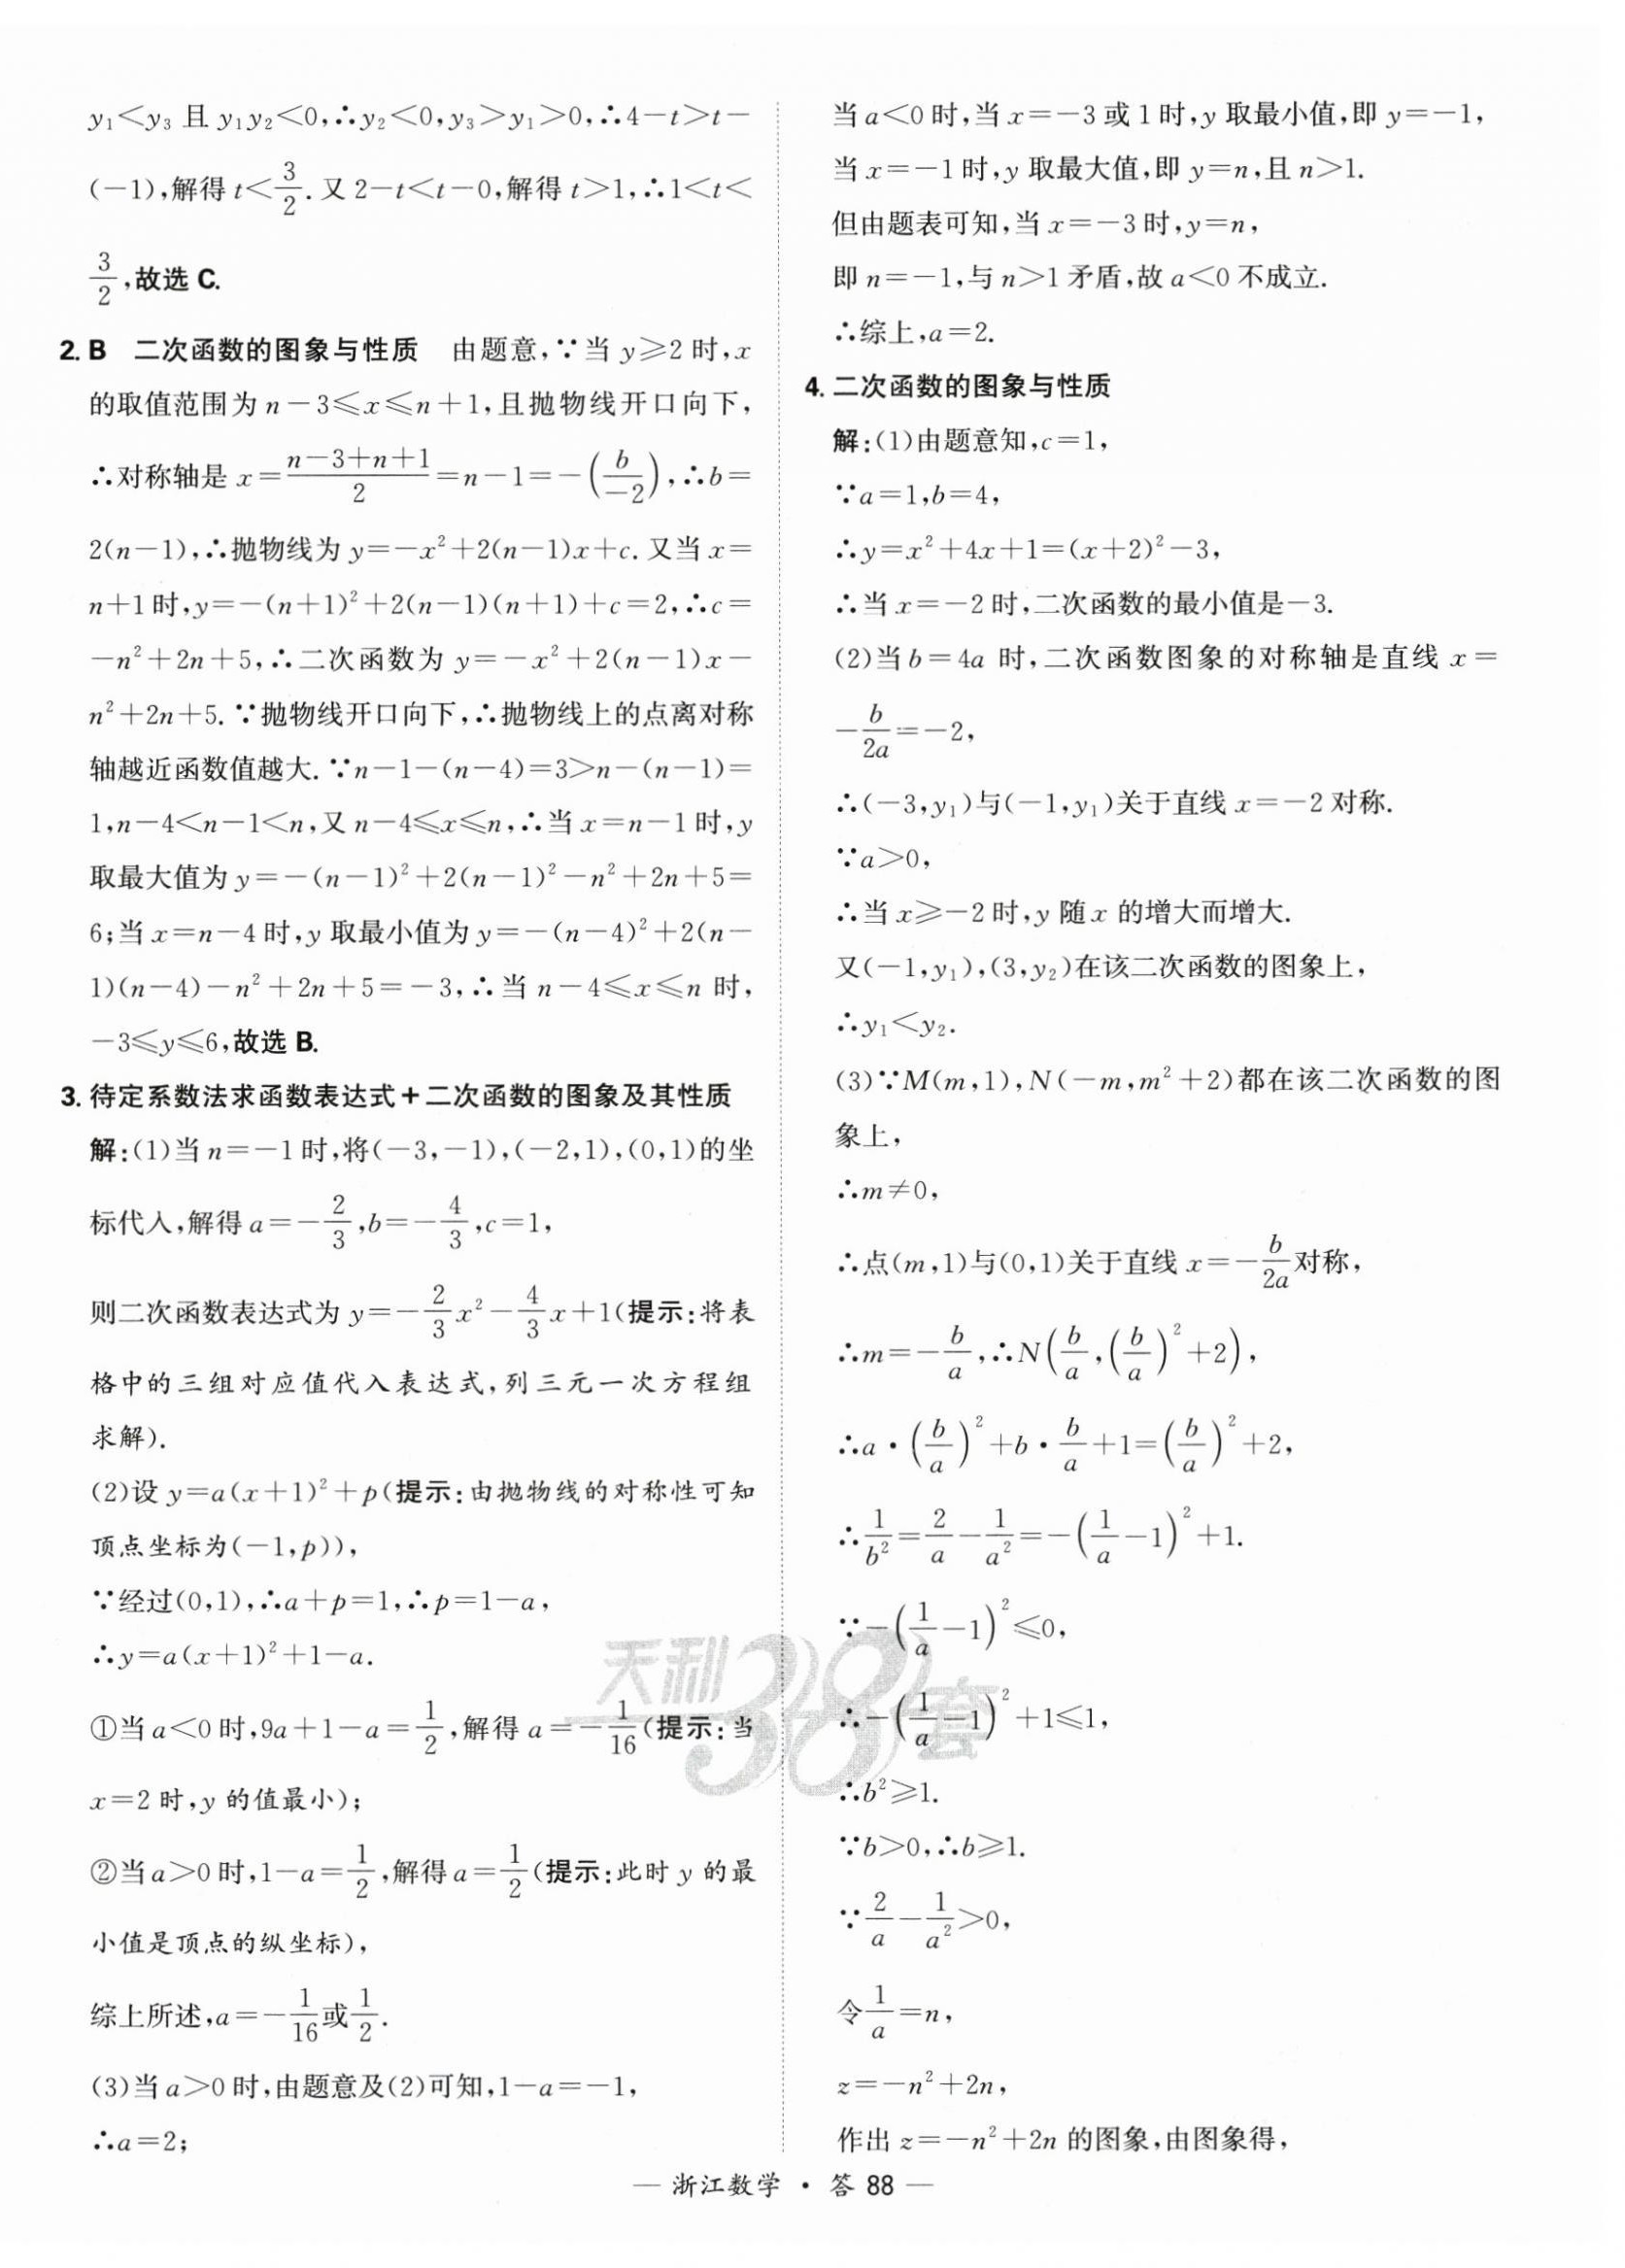 y₁<y₃ 且 y₁y₂<0,∴y₂<0,y₃>y₁>0,∴4-t>t-
(-1),解得 t<3/2. 又 2-t<t-0,解得 t>1,∴1<t<
3/2,故选 C.
2. B 二次函数的图象与性质 由题意,∵当 y≥2 时,x
的取值范围为 n-3≤x≤n+1,且抛物线开口向下,
∴对称轴是 x=(n-3+n+1)/2=n-1=-(b/-2),∴b=
2(n-1),∴抛物线为 y=-x²+2(n-1)x+c. 又当 x=
n+1 时,y=-(n+1)²+2(n-1)(n+1)+c=2,∴c=
-n²+2n+5,∴二次函数为 y=-x²+2(n-1)x-
n²+2n+5. ∵抛物线开口向下,∴抛物线上的点离对称
轴越近函数值越大. ∵n-1-(n-4)=3>n-(n-1)=
1,n-4<n-1<n,又 n-4≤x≤n,∴当 x=n-1 时,y
取最大值为 y=-(n-1)²+2(n-1)²-n²+2n+5=
6;当 x=n-4 时,y 取最小值为 y=-(n-4)²+2(n-
1)(n-4)-n²+2n+5=-3,∴当 n-4≤x≤n 时,
-3≤y≤6,故选 B.
3. 待定系数法求函数表达式+二次函数的图象及其性质
解:(1)当 n=-1 时,将(-3,-1),(-2,1),(0,1)的坐
标代入,解得 a=-2/3,b=-4/3,c=1,
则二次函数表达式为 y=-2/3x²-4/3x+1(提示:将表
格中的三组对应值代入表达式,列三元一次方程组
求解).
(2)设 y=a(x+1)²+p(提示:由抛物线的对称性可知
顶点坐标为(-1,p)),
∵经过(0,1),∴a+p=1,∴p=1-a,
∴y=a(x+1)²+1-a.
①当 a<0 时,9a+1-a=1/2,解得 a=-1/16(提示:当
x=2 时,y 的值最小);
②当 a>0 时,1-a=1/2,解得 a=1/2(提示:此时 y 的最
小值是顶点的纵坐标),
综上所述,a=-1/16或1/2.
(3)当 a>0 时,由题意及(2)可知,1-a=-1,
∴a=2;
当 a<0 时,当 x=-3 或 1 时,y 取最小值,即 y=-1,
当 x=-1 时,y 取最大值,即 y=n,且 n>1.
但由题表可知,当 x=-3 时,y=n,
即 n=-1,与 n>1 矛盾,故 a<0 不成立.
∴综上,a=2.
4. 二次函数的图象与性质
解:(1)由题意知,c=1,
∵a=1,b=4,
∴y=x²+4x+1=(x+2)²-3,
∴当 x=-2 时,二次函数的最小值是-3.
(2)当 b=4a 时,二次函数图象的对称轴是直线 x=
-b/2a=-2,
∴(-3,y₁)与(-1,y₁)关于直线 x=-2 对称.
∵a>0,
∴当 x≥-2 时,y 随 x 的增大而增大.
又(-1,y₁),(3,y₂)在该二次函数的图象上,
∴y₁<y₂.
(3)∵M(m,1),N(-m,m²+2)都在该二次函数的图
象上,
∴m≠0,
∴点(m,1)与(0,1)关于直线 x=-b/2a对称,
∴m=-b/a,∴N(b/a,(b/a)²+2),
∴a·(b/a)²+b·b/a+1=(b/a)²+2,
∴1/b²=2/a-1/a²=-(1/a-1)²+1.
∵-(1/a-1)²≤0,
∴-(1/a-1)²+1≤1,
∴b²≥1.
∵b>0,∴b≥1.
∵2/a-1/a²>0,
令1/a=n,
z=-n²+2n,
作出 z=-n²+2n 的图象,由图象得,
天利38套
— 浙江数学 · 答 88 —